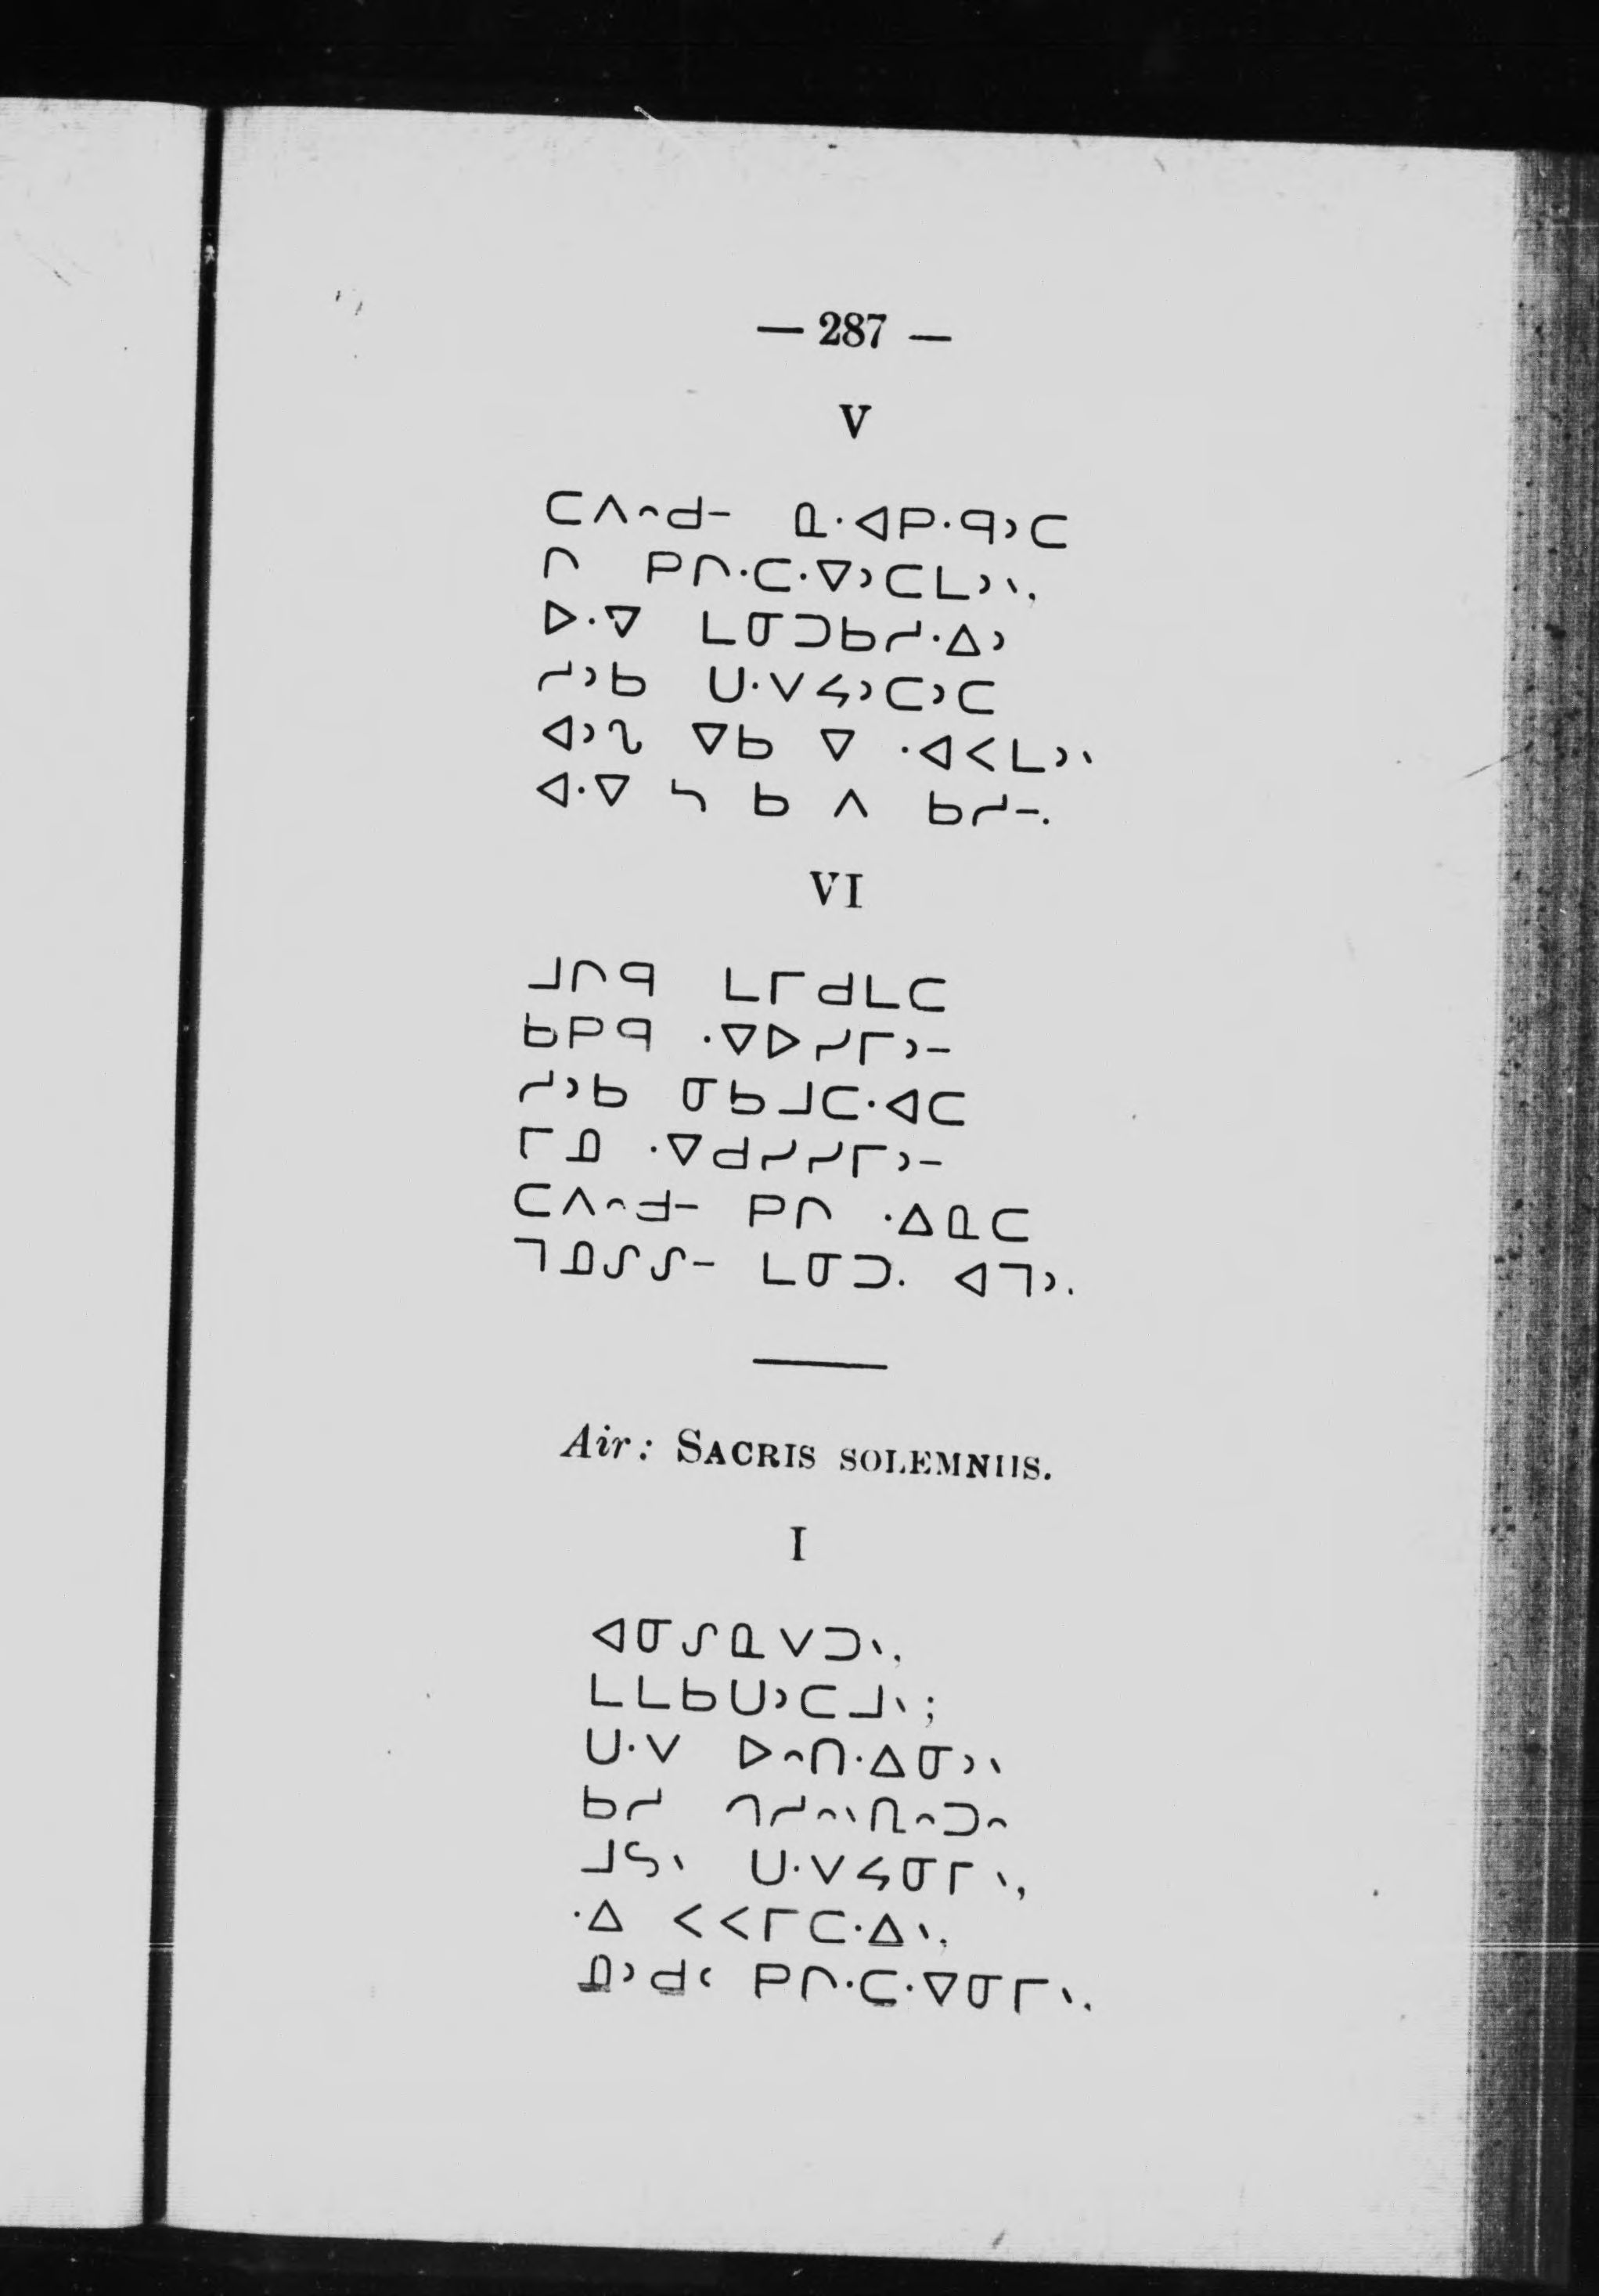 — 287 —
V
ᑕᐱᐢᑯᐨ ᓇᐧᐊᑭᐧᑫᐣᑕ
ᒋ ᑭᒋᐧᑕᐧᐁᐣᑕᒪᐣᐠ,
ᐅᐧᐁ ᒪᓂᑐᑲᓯᐧᐃᐣ
ᓯᐣᑲ ᑌᐧᐯᔦᐣᑕᐣᑕ
ᐊᐣᔐ ᐁᑲ ᐁ ᐧᐊᐸᒪᐣᐠ
ᐊᐧᐁ ᓴ ᑲ ᐱ ᑲᓯᐨ.
VI
ᒧᒋᑫ ᒪᒥᑯᒪᑕ
ᑲᑭᑫ ᐧᐁᐅᓯᒥᐣᐨ
ᓯᐣᑲ ᓂᑲᒧᑕᐧᐊᑕ
ᒥᓄ ᐧᐁᑯᓯᓯᒥᐣᐨ
ᑕᐱᐢᑯᐨ ᑭᒋ ᐧᐃᓇᑕ
ᒣᓄᔑᔑᐨ ᒪᓂᑐ. ᐊᒣᐣ.
Air: SACRIS SOLEMNIIS.
I
ᐊᓂᔑᓇᐯᑐᐠ,
ᒪᒪᑲᑌᐣᑕᒧᐠ;
ᑌᐧᐯ ᐅᐢᑎᐧᐃᓂᐣᐠ
ᑲᓯ ᒉᓯᐢᐠᒐᐢᑐᐢ
ᒧᔕᐠ ᑌᐧᐯᔦᓂᒥᐠ,
ᐧᐃ ᐸᐸᒥᑕᐧᐃᐠ,
ᓄᐣᑯᑊ ᑭᒋᐧᑕᐧᐁᓂᒥᐠ.